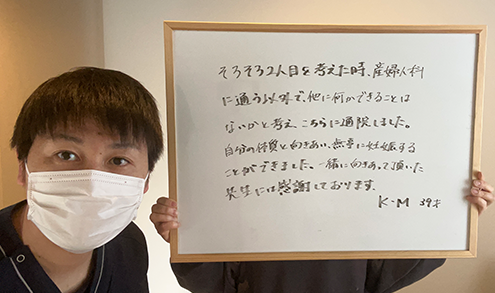 そろそろ2人目を考えた時、産婦人科
に通う以外で、他に何かできることは
ないかと考え、こちらに通院しました。
自分の体質と向きあい、無事に妊娠する
ことができました。一緒に向きあって頂いた
先生には感謝しております。
K・M 39才